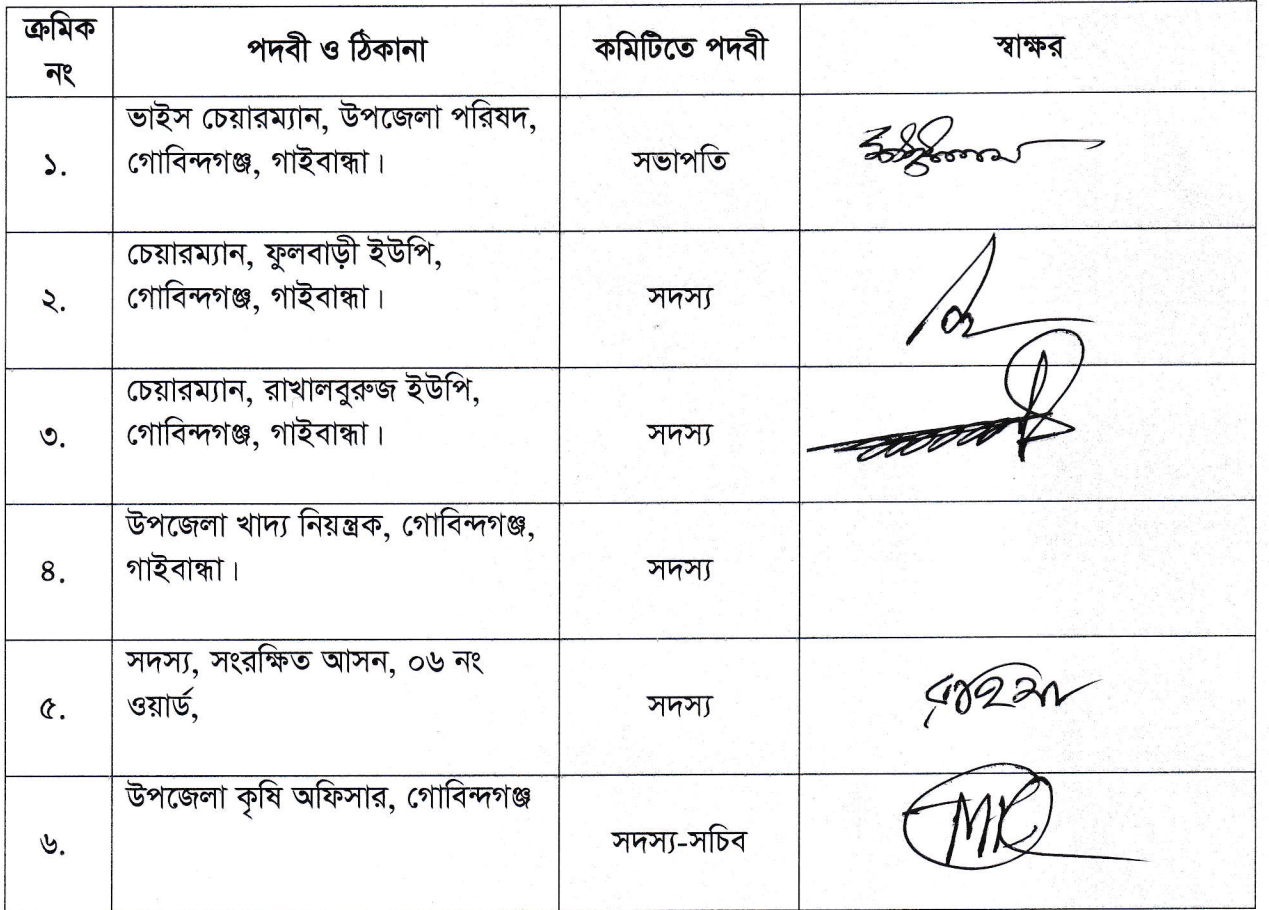 ক্রমিক
নং
পদবী ও ঠিকানা
কমিটিতে পদবী
স্বাক্ষর
১.
ভাইস চেয়ারম্যান, উপজেলা পরিষদ,
গোবিন্দগঞ্জ, গাইবান্ধা।
সভাপতি
২.
চেয়ারম্যান, ফুলবাড়ী ইউপি,
গোবিন্দগঞ্জ, গাইবান্ধা।
সদস্য
৩.
চেয়ারম্যান, রাখালবুরুজ ইউপি,
গোবিন্দগঞ্জ, গাইবান্ধা।
সদস্য
৪.
উপজেলা খাদ্য নিয়ন্ত্রক, গোবিন্দগঞ্জ,
গাইবান্ধা।
সদস্য
৫.
সদস্য, সংরক্ষিত আসন, ০৬ নং
ওয়ার্ড,
সদস্য
৬.
উপজেলা কৃষি অফিসার, গোবিন্দগঞ্জ
সদস্য-সচিব